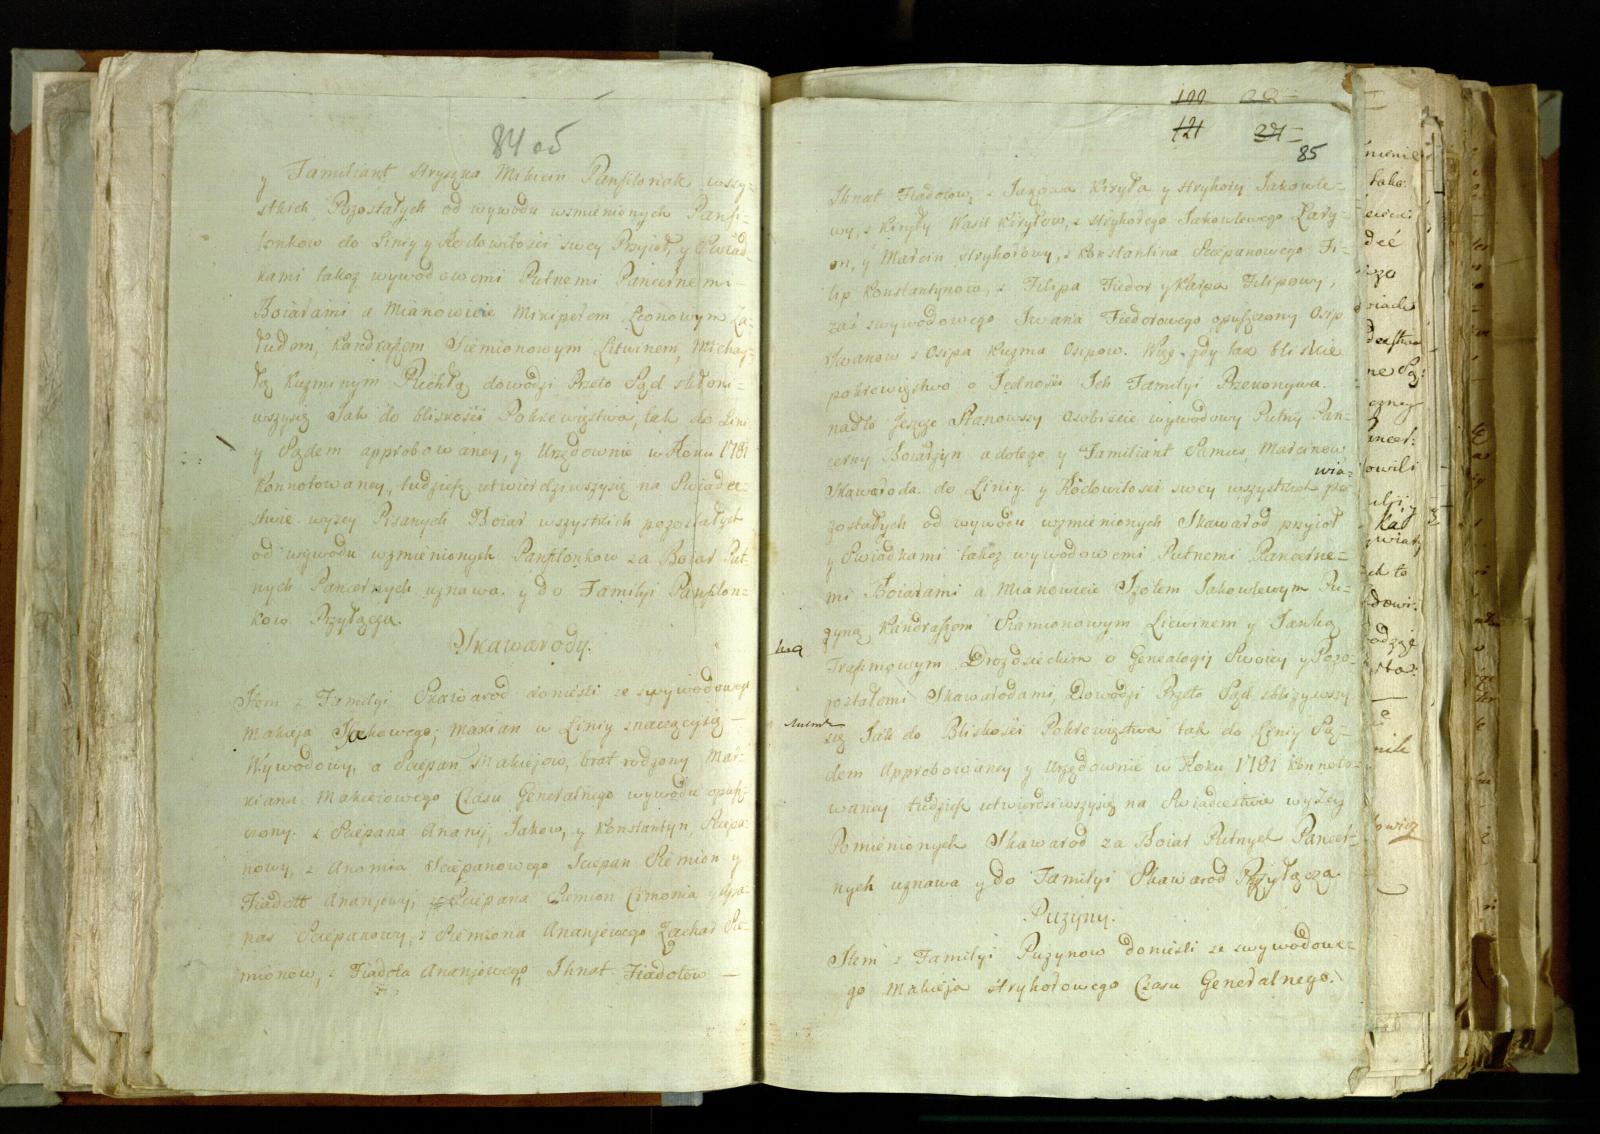 84 об
y Familiant Hryszka Mikicin Panfilonak wszy=
stkich Pozostałych od wywodu wzmienionych Panfi=
lonkow do Linij y Rodowitości swey Przyioł, y Swiad=
kami takoż wywodowemi Putnemi Pancernemi
Boiarami a Mianowicie Nikiperem Leonowym Za=
łudem, Kandraszem Siemionowym Litwinem, Michay=
łą Kuzminym Plechłą dowodzi Przeto Sąd skłoni=
wszysię Jak do bliskości Pokrewieństwa, tak do Lini
y Sądem approbowaney, y Urzędownie w Roku 1781
Konnotowaney, tudzież utwierdziwszysię na Swiadec=
stwie wyżey Pisanych Boiar wszystkich pozostałych
od wywodu wzmienionych Panfilonkow za Boiar Put=
nych Pancernych uznawa y do Familyi Panfilon=
kow Przyłącza.
Skawarody.
Item z Familyi Skawarod donieśli ze zwywodowego
Makieja Jakowego; Marian w Linij znaczącysię —
Wywodowy, a Sciepan Makiejow, brat rodzony Mar=
kiana Makieiowego Czasu Generalnego wywodu opusz=
czony. z Sciepana Ananij, Jakow, y Konstantyn, Sciepa=
nowy, z Anania Sciepanowego Sciepan Siemion y
Fiadott Ananjewy, z Sciepana Siemion Cimonia y Apa=
nas Sciepanowy, z Siemiona Ananjewego Zachar Sie=
mionow, z Fiadota Ananjewego, Ihnat Fiadotow —
100
121
85
Ihnat Fiadotow, z Jakowa Kiryła y Hryhory Jakowle=
wy, z Kiryły Wasil Kiryłow, z Hryhorego Jakowlewego Łary=
on, y Marcin Hryhorowy, z Konstantina Sciepanowego Fi=
lip Konstantynow, z Filipa Fiedor y Karpa Filipowy,
zaś zwywodowego Iwana Fiedorowego opuszczony Osip
Iwanow z Osipa Kuzma Osipow. Więc gdy tak bliskie
pokrewięstwo o Jedności Ich Familyi Przekonywa.
nadto Jeszcze Stanowszy osobiście wywodowy Putny Pan=
cerny Boiarzyn adotego y Familiant Samuś Marcinow
Skawaroda do Linij y Rodowitości swey wszystkich po=
wia=
zostałych od wywodu wzmienionych Skawarod przyioł
y Swiadkami takoż wywodowemi Putnemi Pancerne=
mi Boiarami a Mianowicie Jzotem Jakowlewym Pu=
zyną, Kandraszem Siamionowym Liewinem y Janką
Trafimowym Drozdzieckim o Genealogij Swoiey y Pozo=
zostałemi Skawarodami, Dowodzi Przeto Sąd zbliżywszy
się Jak do Bliskości Pokrewięstwa tak do Linij Są=
dem Approbowaney y Urzędownie w Roku 1781 Konnoto=
waney tudzież utwierdziwszysię na Swiadectwie wyżey
Pomienionych Skawarod za Boiar Putnych Pancer=
nych uznawa y do Familyi Skawarod Przyłącza
Puzyny.
Item z Familyi Puzynow donieśli ze zwywodowe=
go Makieja Hryhorowego Czasu Generalnego.